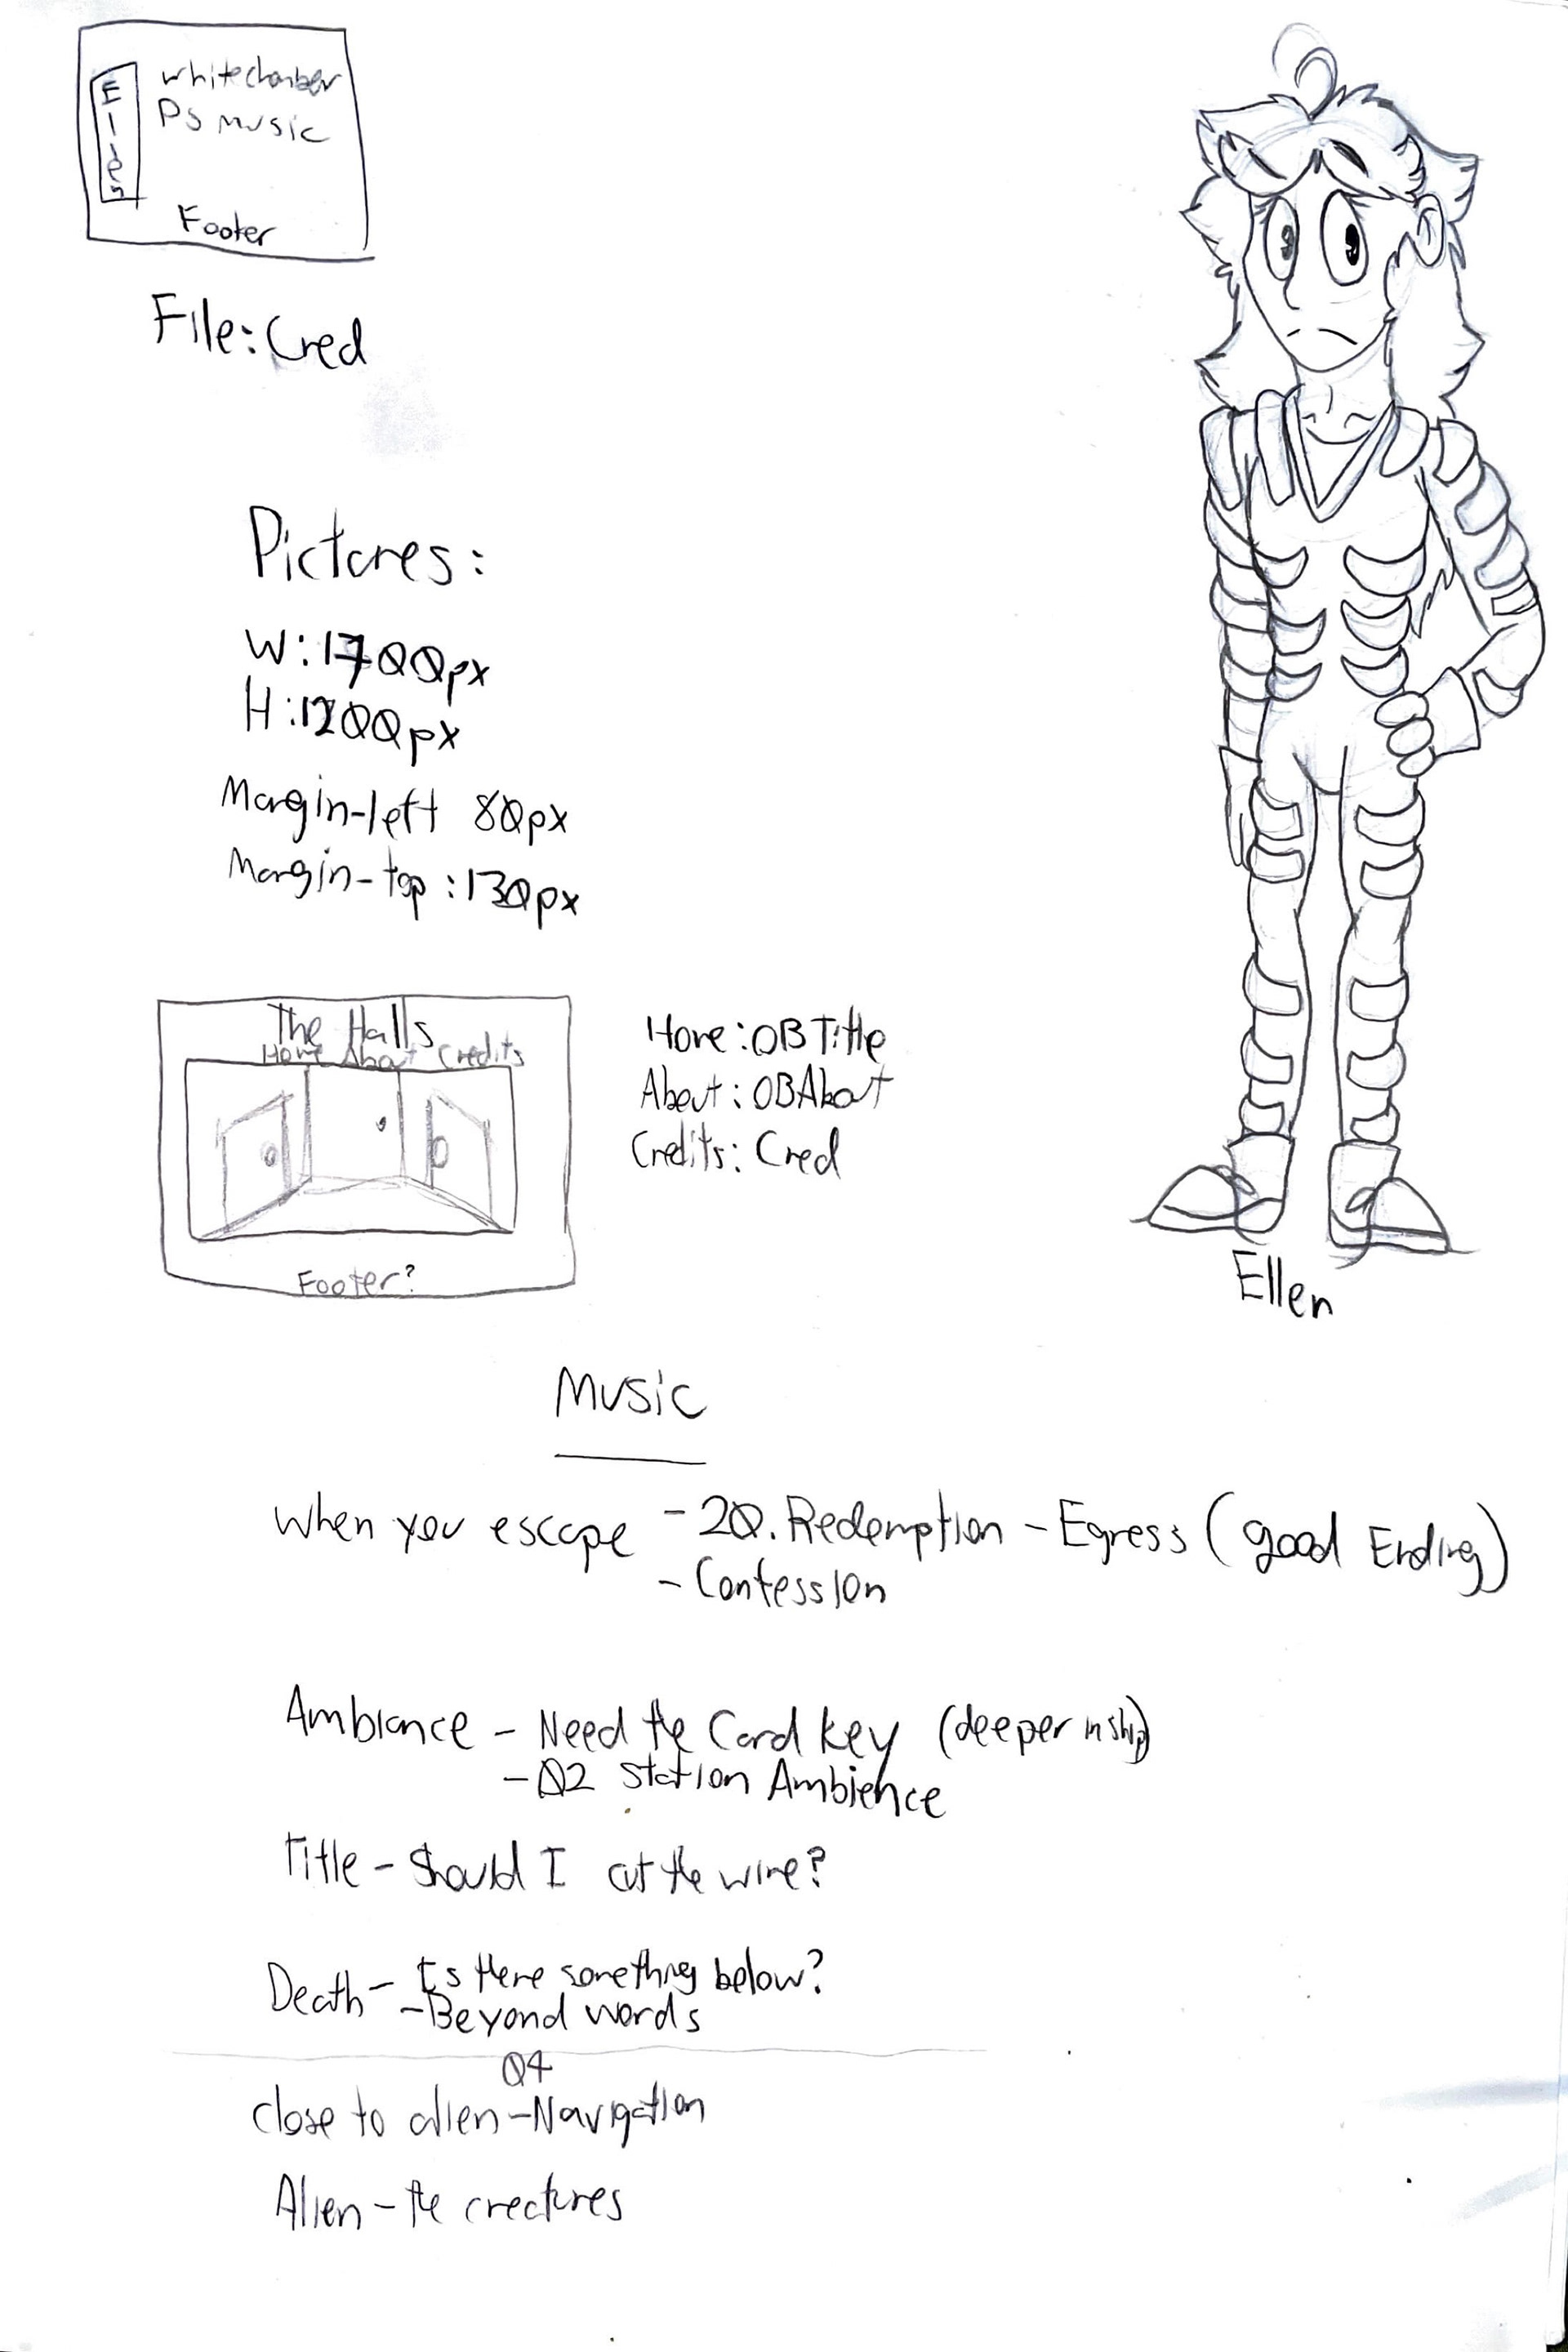 Ellen
whitechamber
Ps music
Footer
File: Cred
Pictures:
W: 1700px
H: 1200px
Margin-left 80px
Margin-top: 130px
The Halls
Home About Credits
Footer?
Home: OBTitle
About: OBAbout
Credits: Cred
Ellen
Music
When you escape - 20. Redemption - Egress (good Ending)
- Confession
Ambiance - Need the Card key (deeper in ship)
- 02 Station Ambience
Title - Should I cut the wire?
Death - Is there something below?
- Beyond words
04
close to alien - Navigation
Alien - the creatures